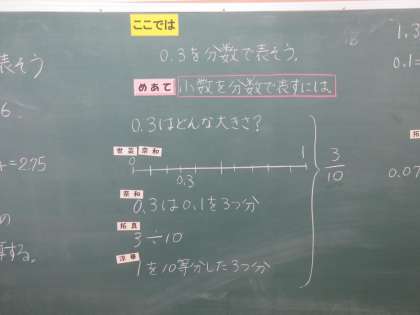 ここでは
0.3を分数で表そう。
めあて 小数を分数で表すには、
0.3はどんな大きさ?
奈和
0 1
0.3
3/10
奈和
0.3は0.1を3つ分
拓真
3÷10
1を10等分した3つ分
表そう
6.
=2.75
の
する。
1.3
0.1=
拓
0.07